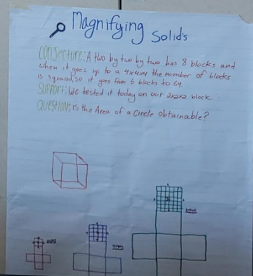 Magnifying
Solids
Conjecture: A two by two by two has 8 blocks and
when it goes up to a 4x4x4 the number of blocks
is squared so it goes from 8 blocks to 64.
Support: We tested it today on our 2x2x2 block
Question: is the Area of a Circle obtainable?